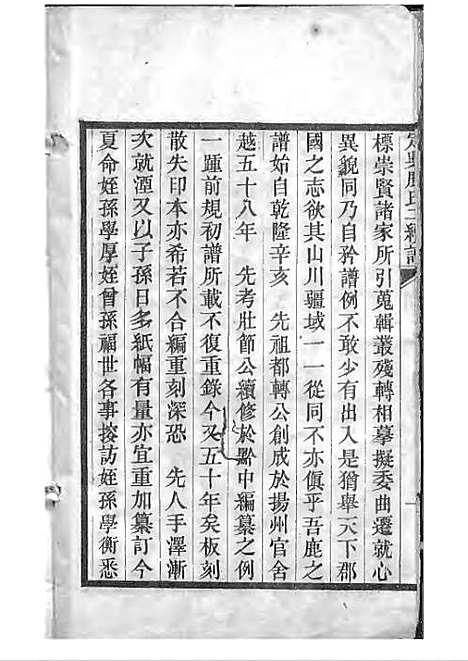 定興鹿氏二續譜
標崇賢諸家所引蒐輯叢殘轉相摹擬委曲遷就心
異貌同乃自矜譜例不敢少有出入是猶舉天下郡
國之志欲其山川疆域一一從同不亦傎乎吾鹿之
譜始自乾隆辛亥 先祖都轉公創成於揚州官舍
越五十八年 先考壯節公續修於黔中編纂之例
一踵前規初譜所載不復重錄今又五十年矣板刻
散失印本亦希若不合編重刻深恐 先人手澤漸
次就湮又以子孫日多紙幅有量亦宜重加纂訂今
夏命姪孫學厚姪曾孫福世各事搜訪姪孫學衡悉